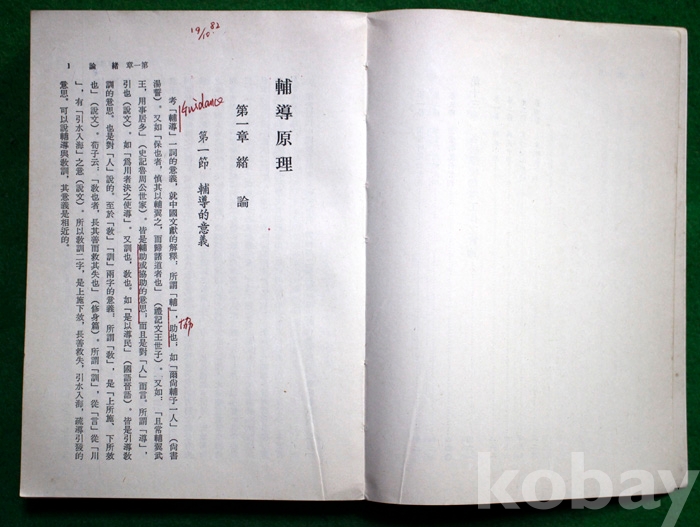 19/10.82
輔導原理
第一章 緒論
第一節 輔導的意義
Guidance
考「輔導」一詞的意義，就中國文獻的解釋，所謂「輔」，助也，如「爾尚輔予一人」（尚書
湯誓）。又如「保也者，慎其以輔翼之，而歸諸道者也」（禮記文王世子）。又如：「且常輔翼武
王，用事居多」（史記魯周公世家）。皆是輔助或協助的意思；而且是對「人」而言。所謂「導」，
引也（說文）。如「為川者決之使導」。又訓也，敎也。如「是以導民」（國語晉語）。皆是引導敎
訓的意思，也是對「人」說的。至於「敎」「訓」兩字的意義，所謂「敎」，是「上所施，下所效
也」（說文）。荀子云：「敎也者，長其善而救其失也」（修身篇）。所謂「訓」，從「言」從「川
」，有「引水入海」之意（說文）。所以敎訓二字，是上施下效，長善救失，引水入海，疏導引發的
意思。可以說輔導與敎訓，其意義是相近的。
第一章 緒論
1
kobay